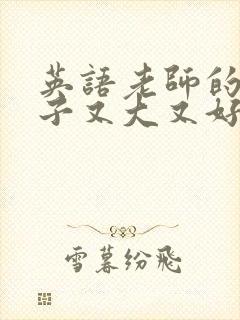 英語老師的
子又大又好
雪暮纷飛